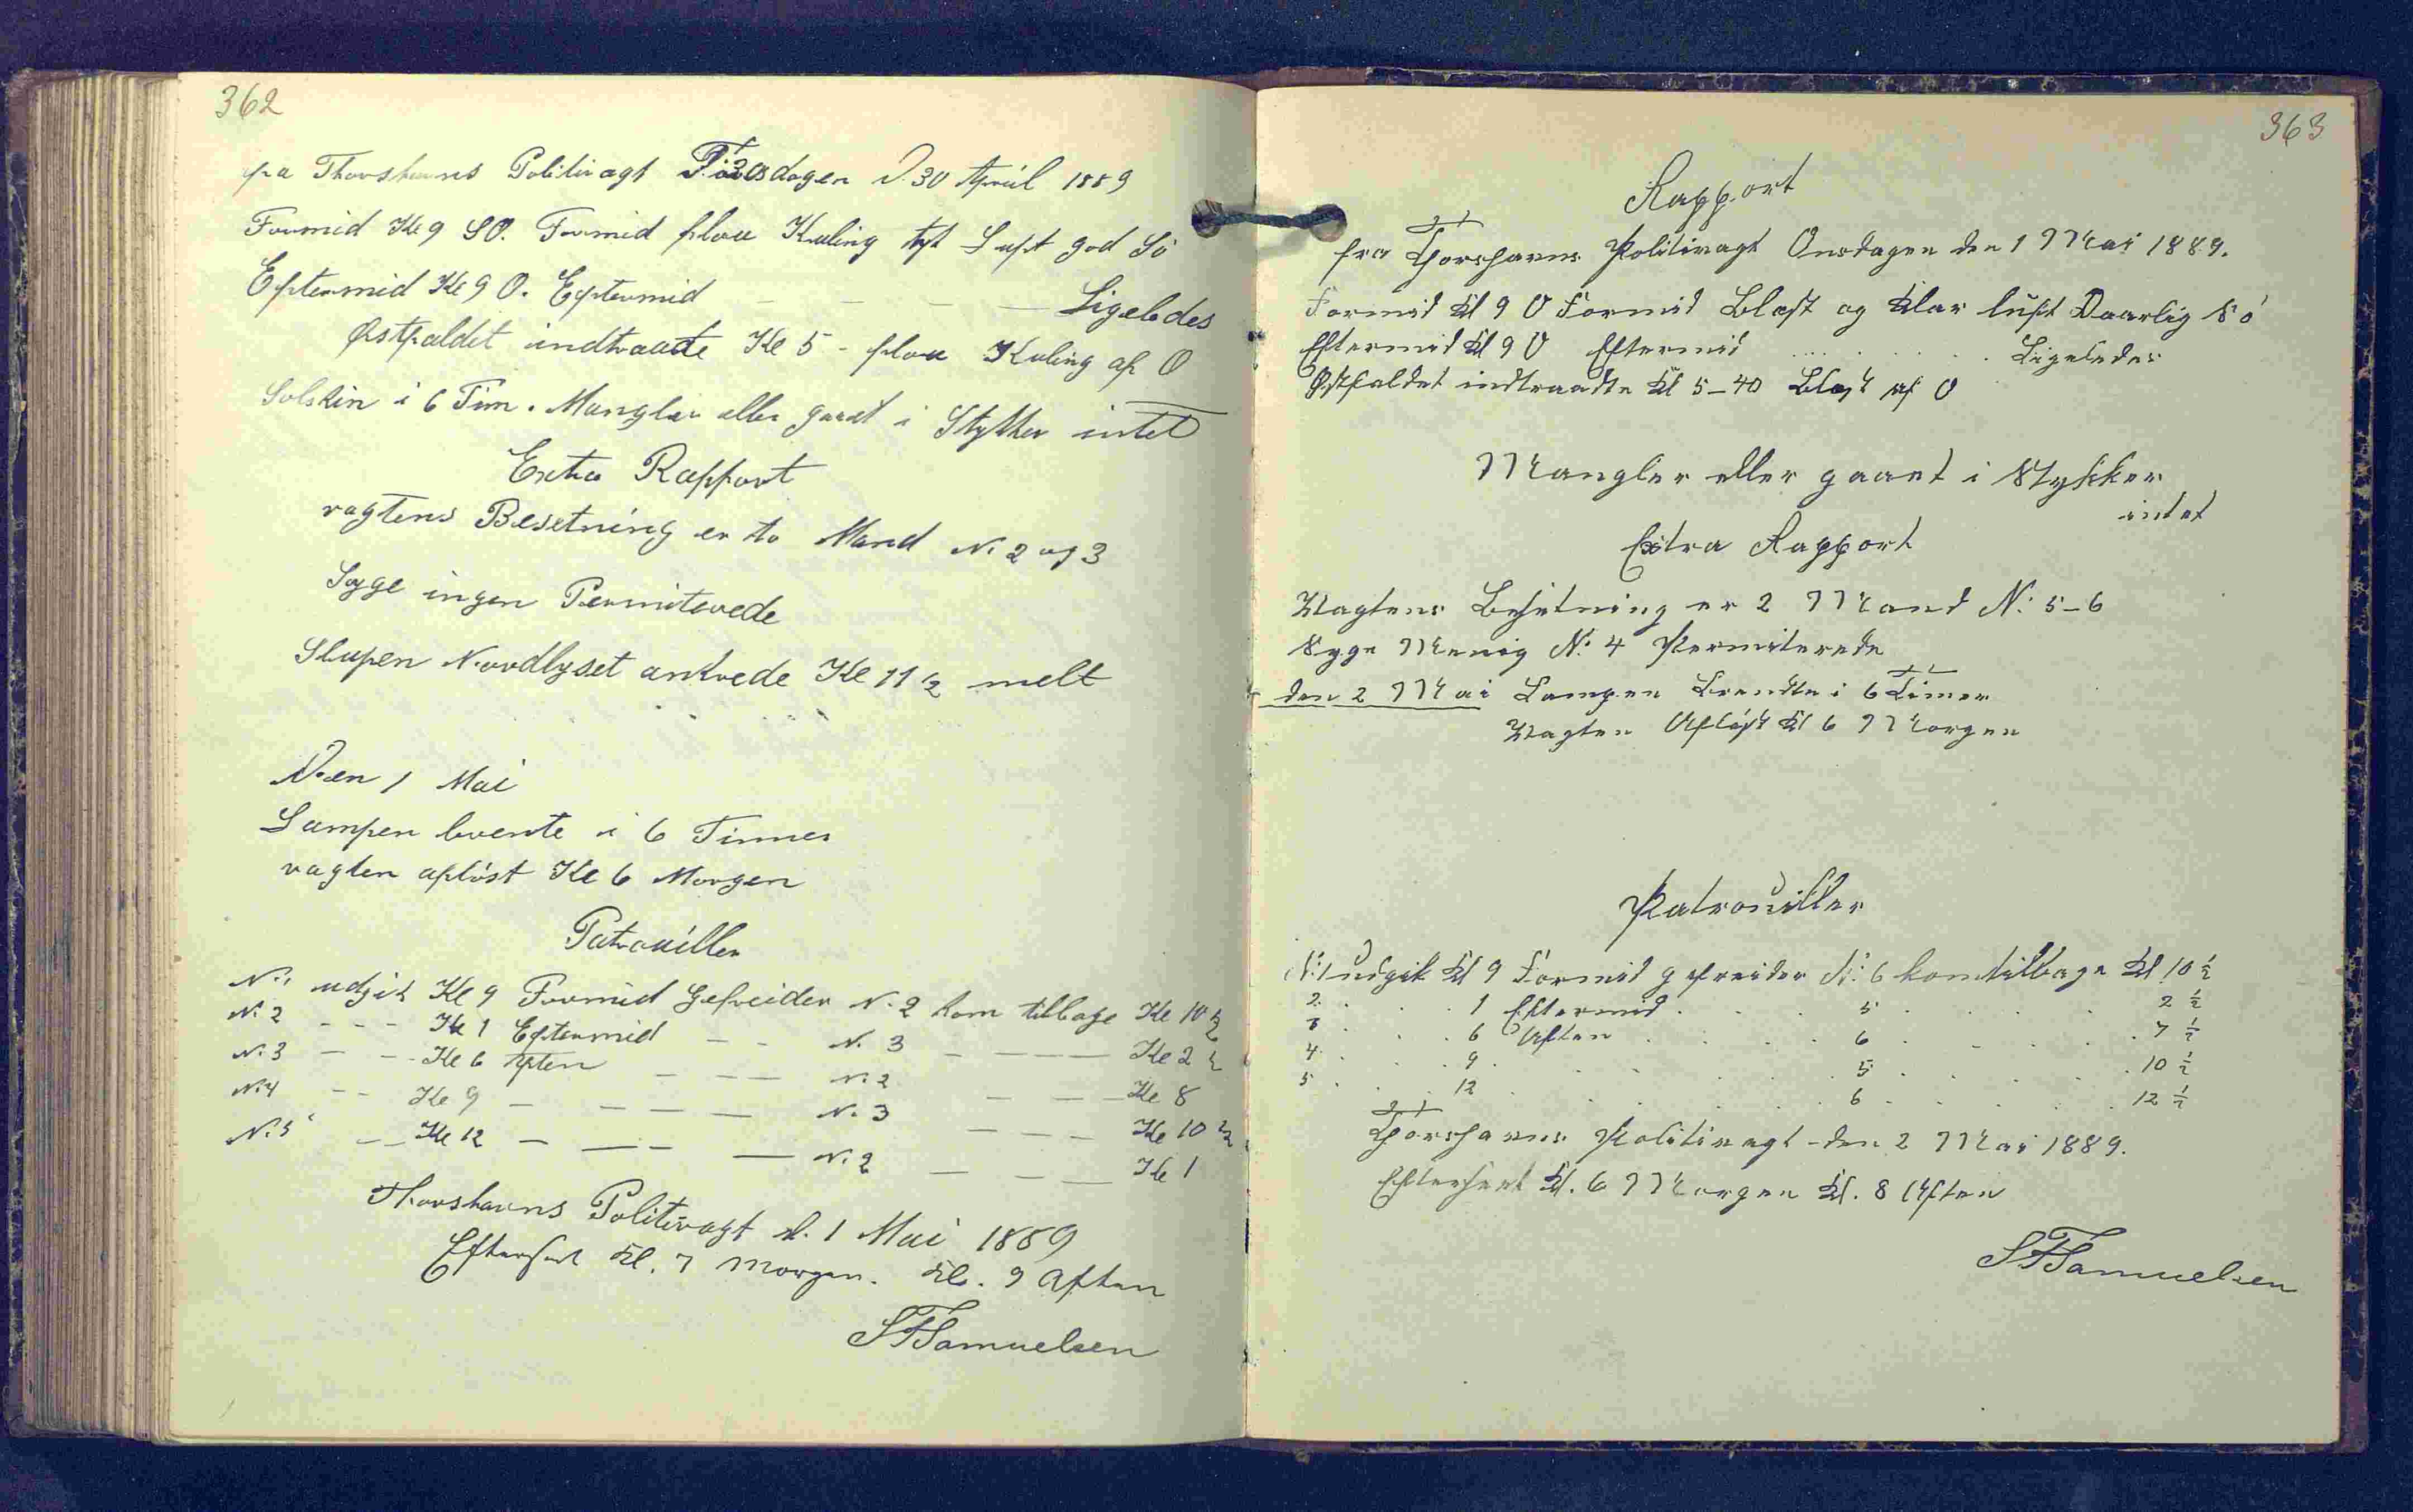 362
fra Thorshavns Politivagt Tirsdagen D. 30 April 1889
Formid Kl 9 SO. Formid flau Kuling tyk Luft god Sö
Eftermid Kl 9 O. Eftermid — — — — Ligeledes
Østfaldet indtraadte Kl 5 - flau Kuling af O
Solskin i 6 Tim. Mangler eller gaaet i Stykker intet
Extra Rapport
vagtens Besetning er to Mand N. 2 og 3
Syge ingen Permiterede
Slupen Nordlyset ankrede Kl 11½ melt
Den 1 Mai
Lampen brente i 6 Timer
vagten aflöst Kl 6 Morgen
Patrouiller
N. 1 udgik Kl 9 Formid Gefreider N. 2 kom tilbage Kl 10½
N. 2 - - - Kl 1 Eftermid - - N. 3 - - - - Kl 2½
N. 3 - - - Kl 6 Aften - - - N. 2 - - - Kl 8
N. 4 - - Kl 9 - - - - - N. 3 - - - Kl 10½
N. 5 - - Kl 12 - - - - N. 2 - - - Kl 1
Thorshavns Politivagt d. 1 Mai 1889
Efterseet Kl. 7 Morgen. Kl. 9 Aften
SFSamuelsen
363
Rapport
fra Thorshavns Politivagt Onsdagen den 1 Mai 1889.
Formid Kl 9 O Formid Blæst og Klar luft Daarlig Sö
Eftermid Kl 9 O Eftermid . . . . . . Ligeledes
Østfaldet indtraadte Kl 5-40 Blæst af O
Mangler eller gaaet i Stykker
intet
Extra Rapport
Vagtens Besetning er 2 Mand N: 5-6
Syge Menig N: 4 Permiterede
den 2 Mai Lampen Brendte i 6 Timer
Vagten Aflöst Kl 6 Morgen
Patrouiller
N: 1 udgik Kl 9 Formid gefreider N: 6 kom tilbage Kl 10½
2 . . . 1 Eftermid . . . 5 . . . . . 2½
3 . . . 6 Aften . . . . 6 . . . . . 7½
4 . . . 9 . . . . . . 5 . . . . . 10½
5 . . . 12 . . . . . . 6 . . . . . 12½
Thorshavns Politivagt den 2 Mai 1889.
Efterseet Kl. 6 Morgen Kl. 8 Aften
SFSamuelsen